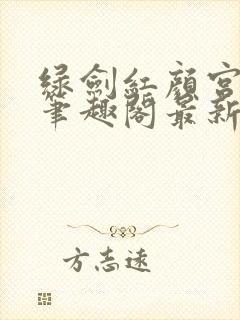 绿剑红颜宫
笔趣阁最新
方志远